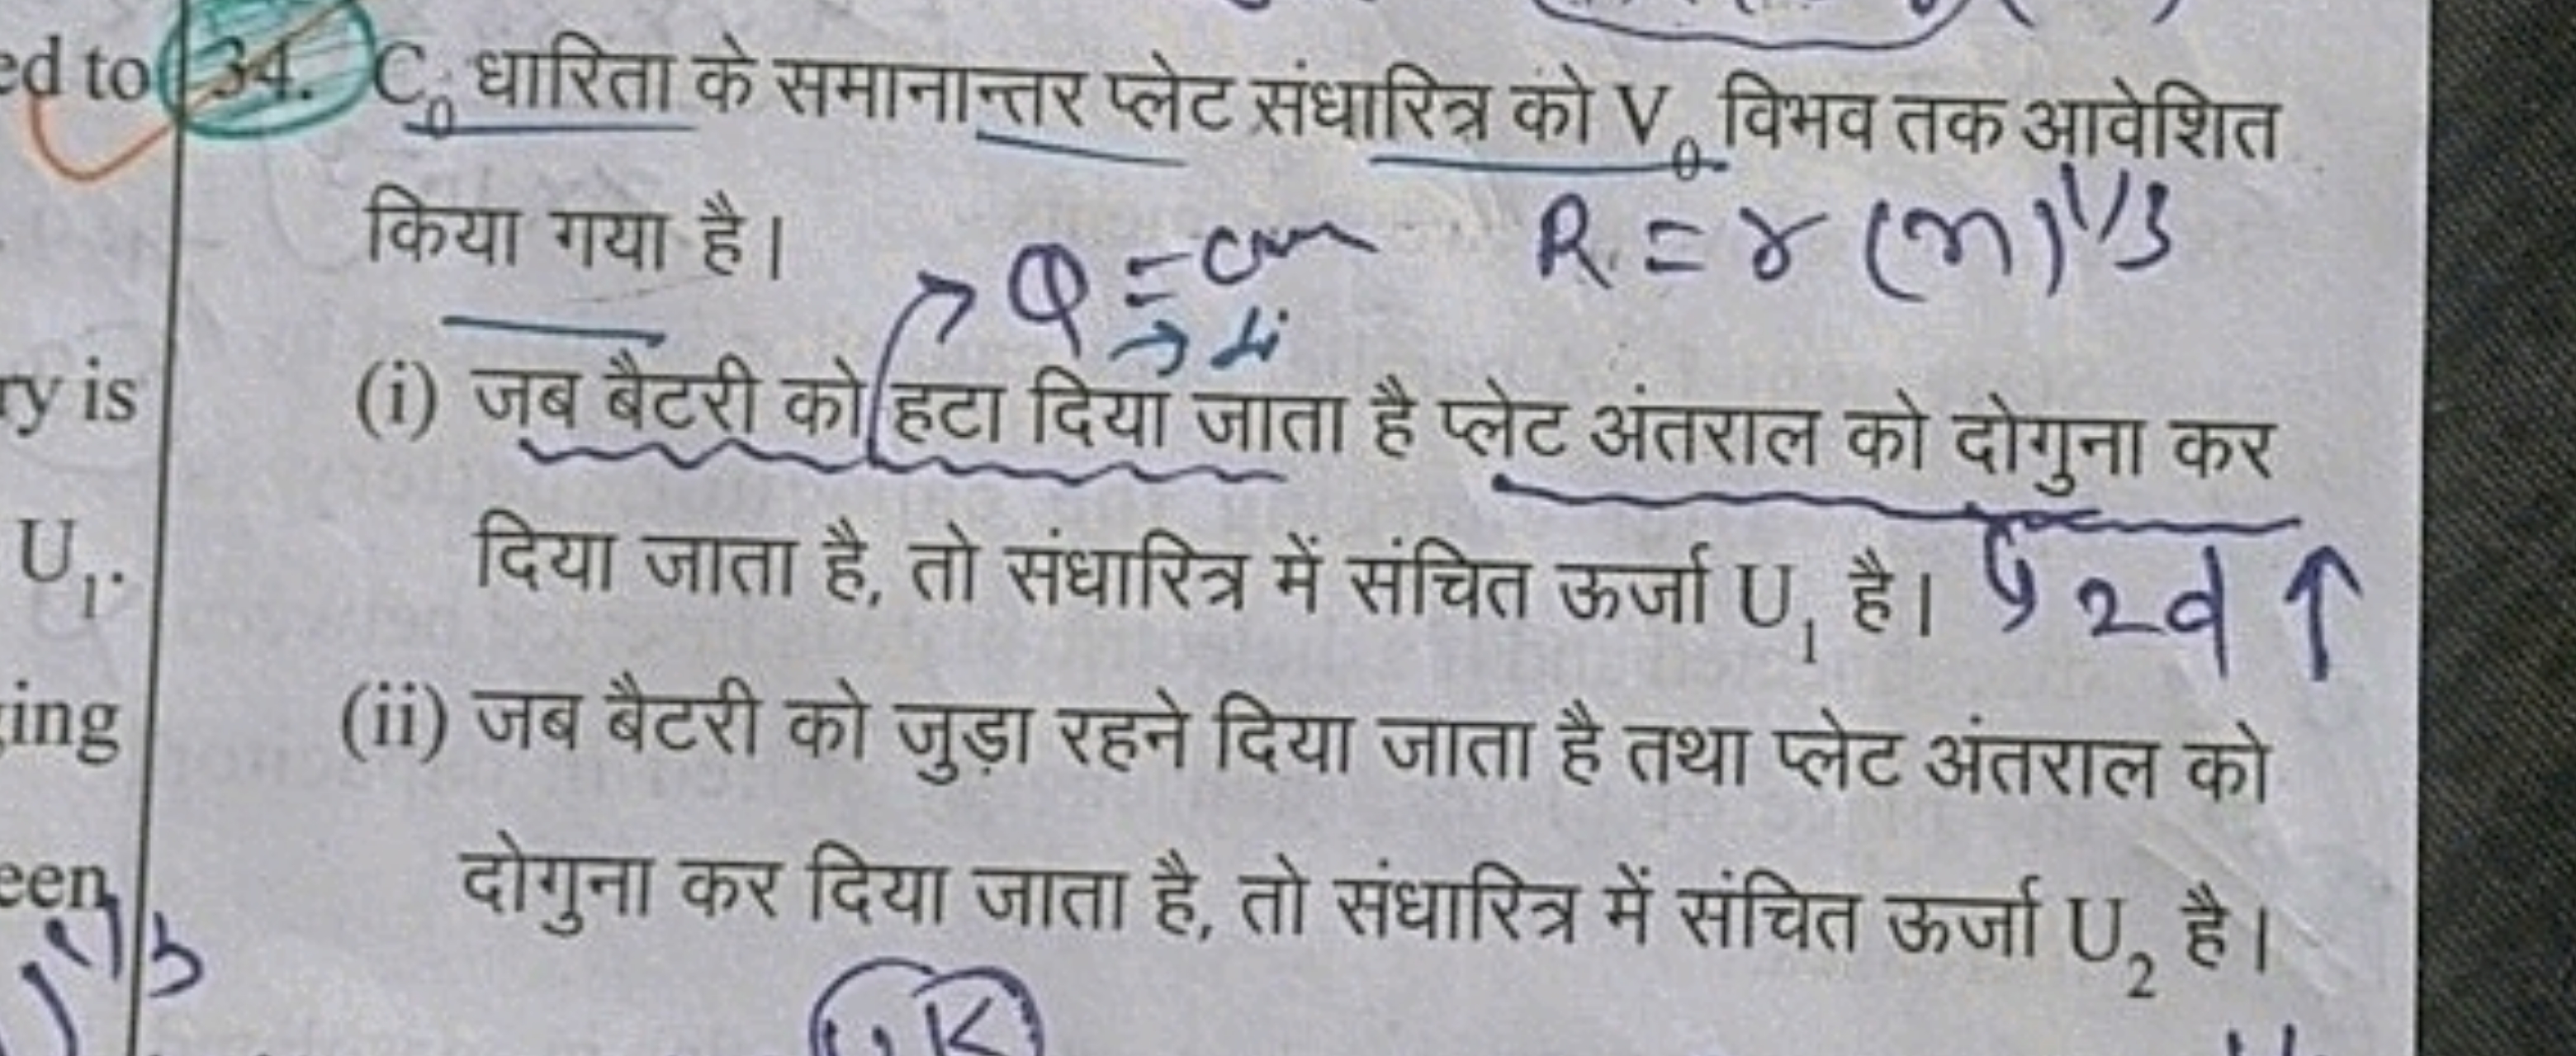 ed to 34. C₀ धारिता के समानान्तर प्लेट संधारित्र को V₀ विभव तक आवेशित
किया गया है।
→ Q = R = r (n)^1/3
ry is (i) जब बैटरी को हटा दिया जाता है प्लेट अंतराल को दोगुना कर
U₁. दिया जाता है, तो संधारित्र में संचित ऊर्जा U₁ है। 2d ↑
ing (ii) जब बैटरी को जुड़ा रहने दिया जाता है तथा प्लेट अंतराल को
een दोगुना कर दिया जाता है, तो संधारित्र में संचित ऊर्जा U₂ है।
1/3
K